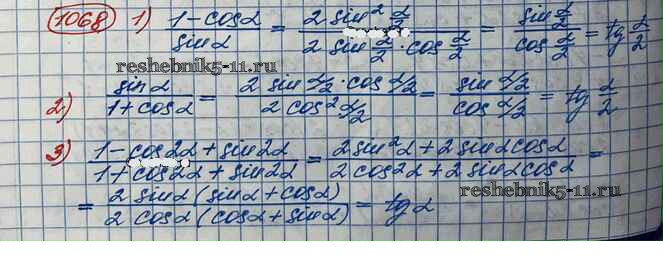 1068 1) (1-cosα)/(sinα) = (2 sin² α/2)/(2 sin α/2 · cos α/2) = (sin α/2)/(cos α/2) = tg α/2
reshebnik5-11.ru
2) (sinα)/(1+cosα) = (2 sin α/2 · cos α/2)/(2 cos² α/2) = (sin α/2)/(cos α/2) = tg α/2
3) (1-cos2α+sin2α)/(1+cos2α+sin2α) = (2 sin²α+2 sinα cosα)/(2 cos²α+2 sinα cosα) =
reshebnik5-11.ru
= (2 sinα (sinα+cosα))/(2 cosα (cosα+sinα)) = tgα